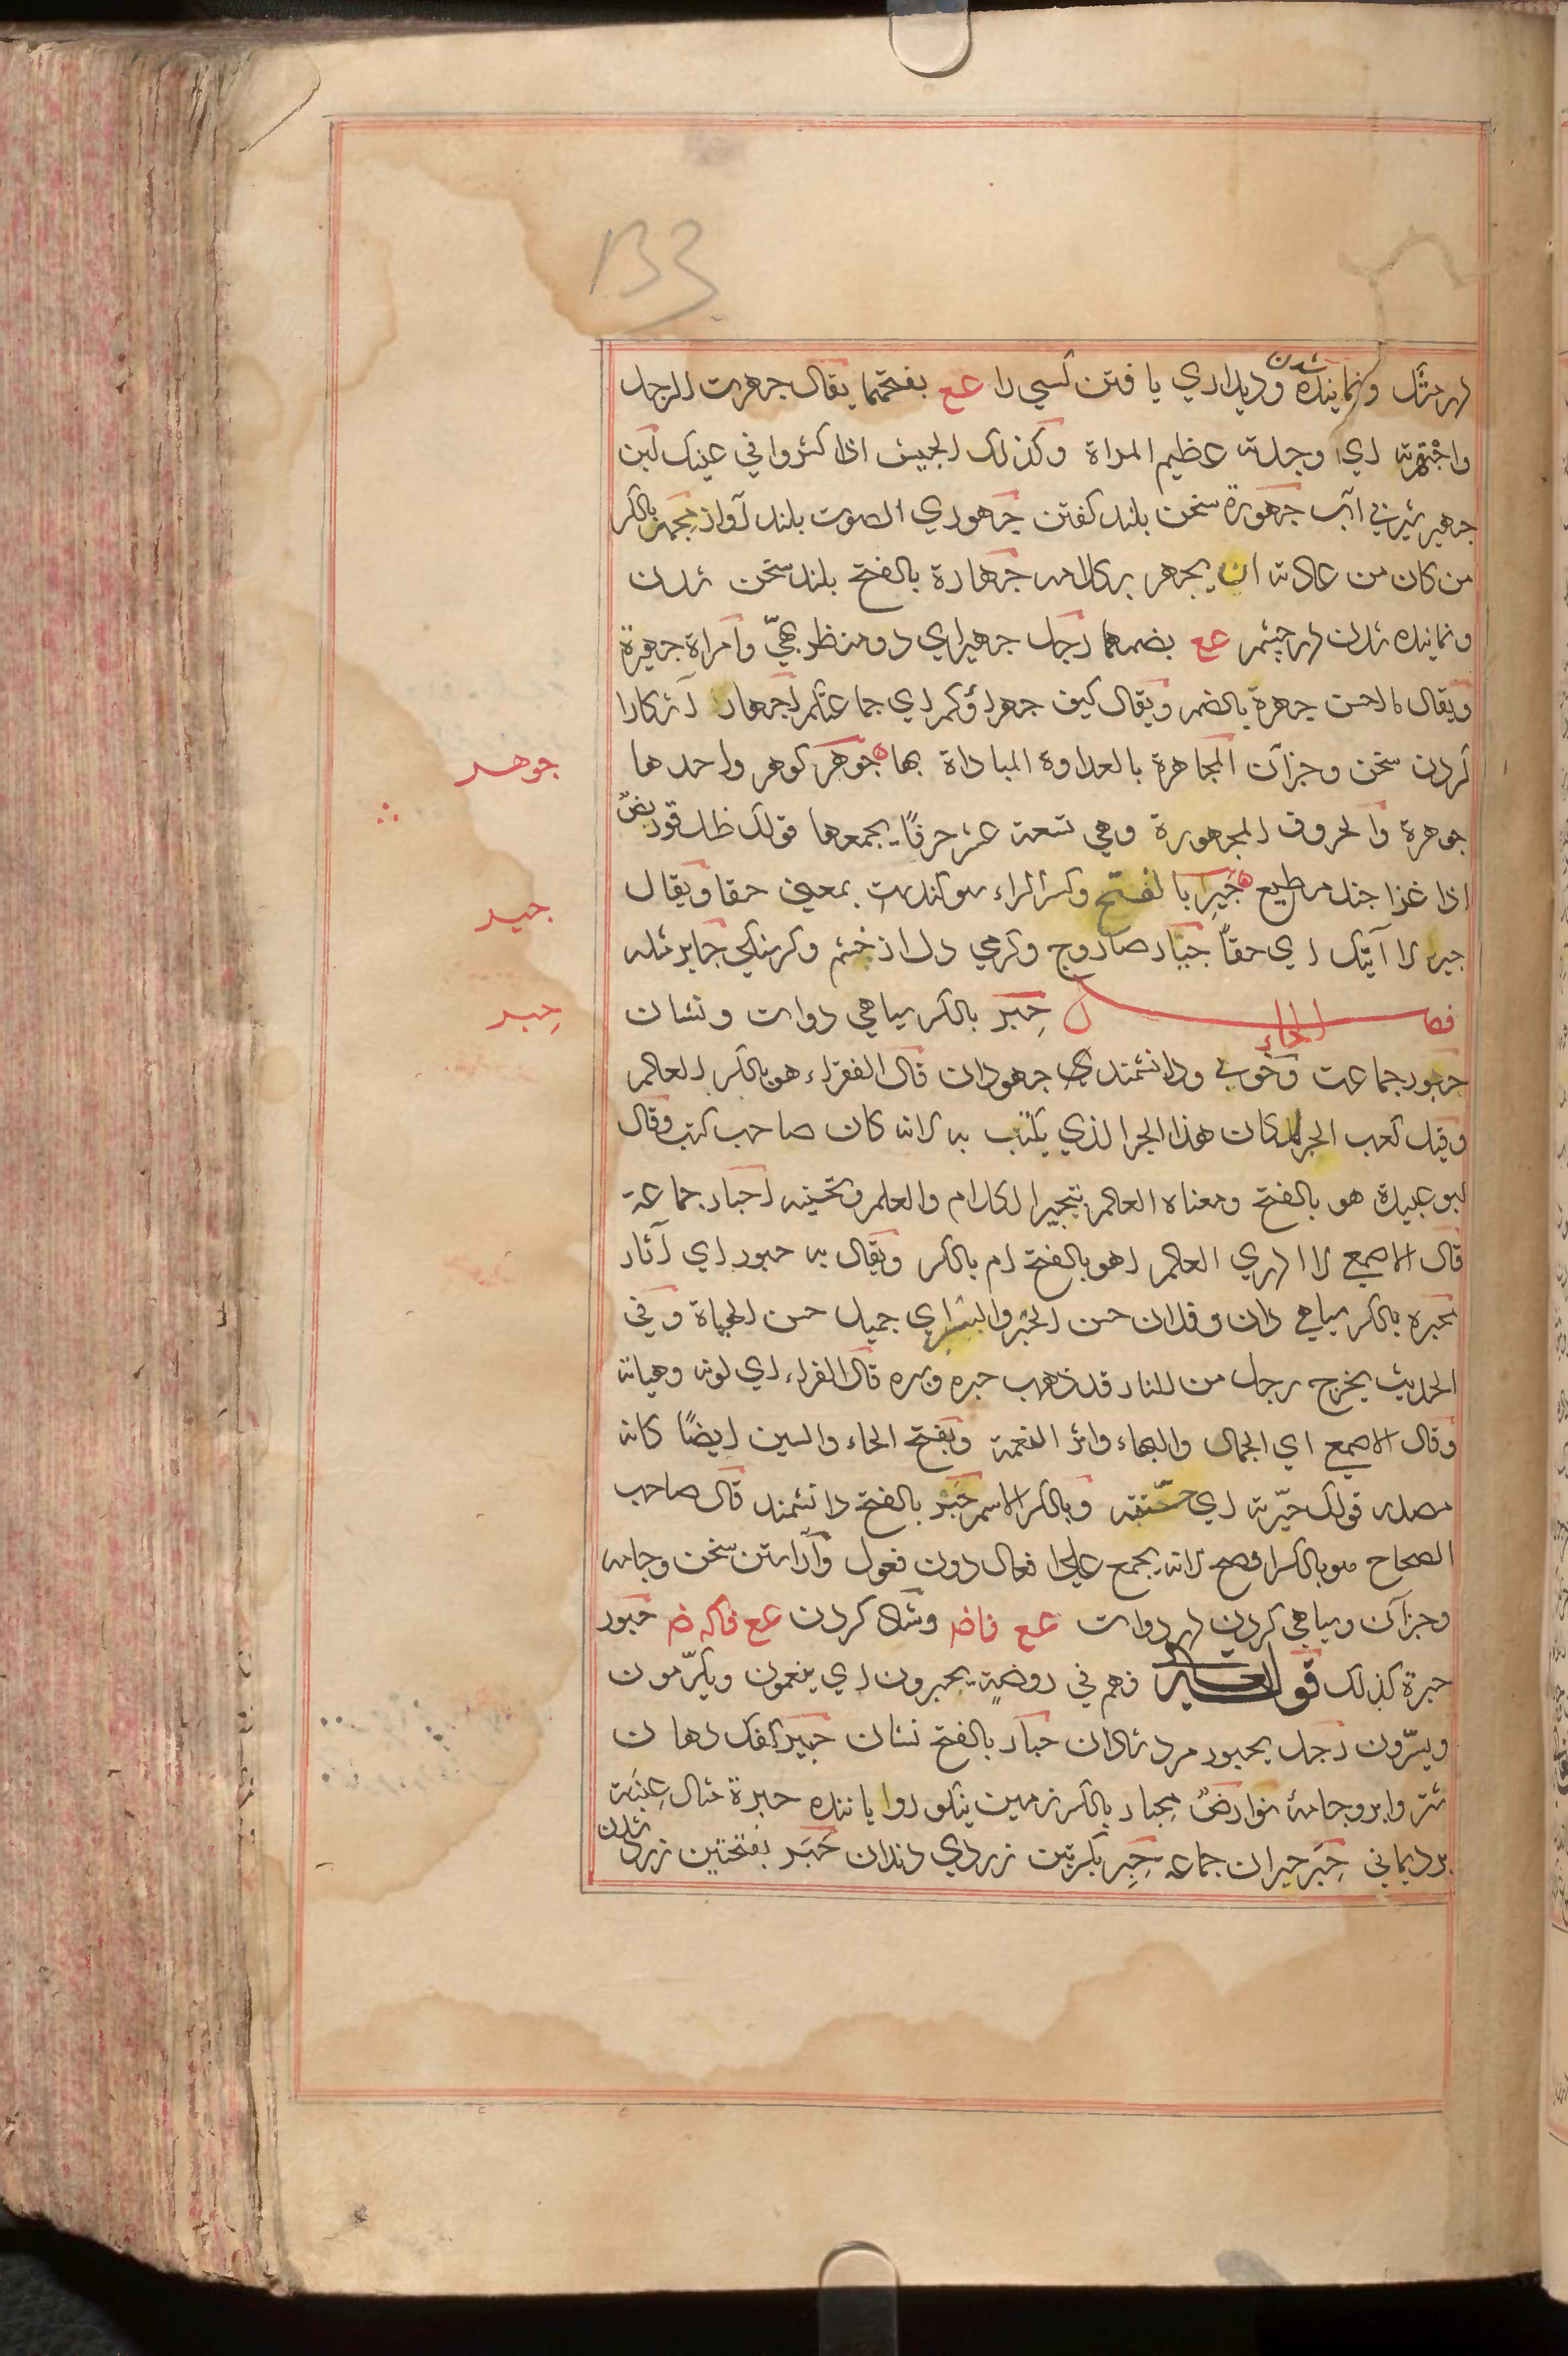 133
در چشم و نماینده شدن و دیداري یافتن کسي را عع بفتحهما یقال جهرت الرجل
واجتهرته اي وجدته عظیم المراة وکذلک الجیش اذا کثروا في عینک لبن
جهیر شیر بي آب جهورة سخن بلند کفتن جهوري الصوت بلند آواز مجهر بالکسر
من کان من عادته ان یجهر بکلامه جهارة بالفتح بلند سخن شدن
و نماینده شدن در چشم عع بضمهما رجل جهیر اي ذو منظر بهيّ وامراة جهیرة
ویقال للحسن جهرة بالضم ویقال کیف جهراؤکم اي جماعتکم اجهار آشکارا
کردن سخن و جز آن المجاهرة بالعداوة المباداة بها جوهر کوهر واحدها
جوهر
جوهرة والحروف المجهورة وهي تسعة عشر حرفًا یجمعها قولک ظل قو ربض
اذا غزا جند مطیع جیر بالفتح وکسر الراء سوکندست بمعني حقا ویقال
جیر
جیر لا آتیک اي حقاً جیّار صاروج وکرمي دل از خشم و کرسنکي جایر مثله
فصل الحاء حبر بالکسر سیاهي دوات و نشان
حبر
حبور جماعت وخوبي ودانشمندي جهودان قال الفراء هو بالکسر العالم
وقیل کعب الحبر لمکان هذا الحبر الذي یکتب به لانه کان صاحب کتب وقال
ابو عبیدة هو بالفتح ومعناه العالم بتحبیر الکلام والعلم وتحسینه احبار جماعة
قال الاصمعي لا ادري العالم اهو بالفتح ام بالکسر ویقال به حبور اي آثار
محبره بالکسر سیاهي دان وفلان حسن الحبر والسبر اي جمیل حسن الهیاة وفي
الحدیث یخرج رجل من النار قد ذهب حبره وسبره قال الفراء اي لونه وهیاته
وقال الاصمعي اي الجمال والبهاء واثر النعمة ویفتح الحاء والسین ایضًا کانه
مصدر قولک حبّرته اي حسّنته وبالکسر الاسم حبر بالفتح دانشمند قال صاحب
الصحاح هو بالکسر افصح لانه یجمع علی افعال دون فعول وآراستن سخن وجامه
وجز آن وسیاهي کردن در دوات عع فاضم وشاد کردن عع فاکه ضم حبور
حبرة کذلک قوله تعالی فهم في روضة یحبرون اي ینعمون ویکرّمون
ویسرّون رجل یحبور مرد شادان حبار بالفتح نشان حبیر کفک دهان
شتر وابر وجامهٔ نو ارض محبار بالکسر زمین نیکو رویاننده حبرة مثال عنبة
برد یماني حبر حبران جماعه حبر بکسرتین زردي دندان حبر بفتحتین زرد شدن